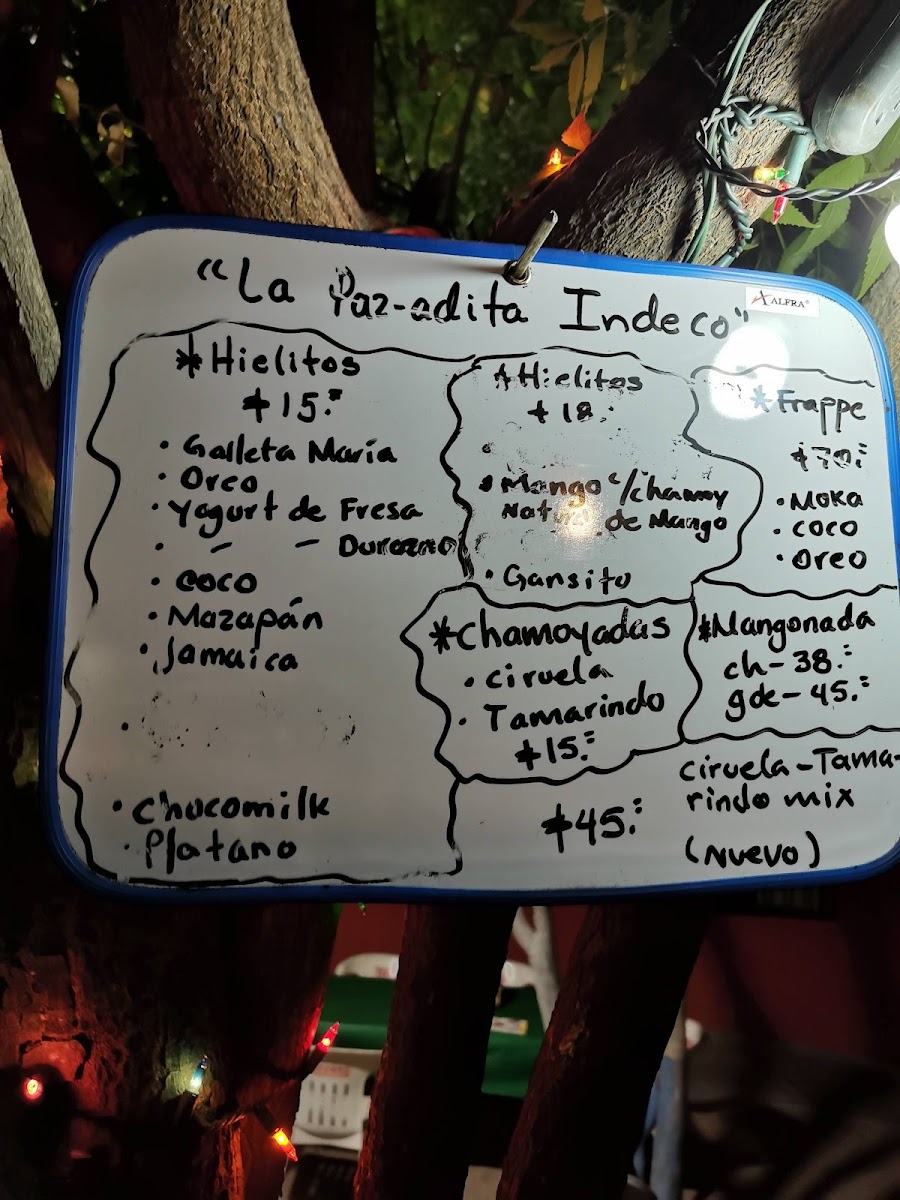 "La Paz-adita Indeco"
ALFRA
*Hielitos
$15.=
• Galleta María
• Oreo
• Yogurt de Fresa
• - - Durazno
• coco
• Mazapán
• Jamaica
•
• Chocomilk
• Platano
*Hielitos
$18.
• Mango c/chamoy
Natural de Mango
• Gansito
*Frappe
$70.=
• Moka
• coco
• oreo
*Chamoyadas
• ciruela
• Tamarindo
$15.=
*Mangonada
ch- 38.=
gde- 45.=
ciruela-Tama-
rindo mix
$45.=
(Nuevo)